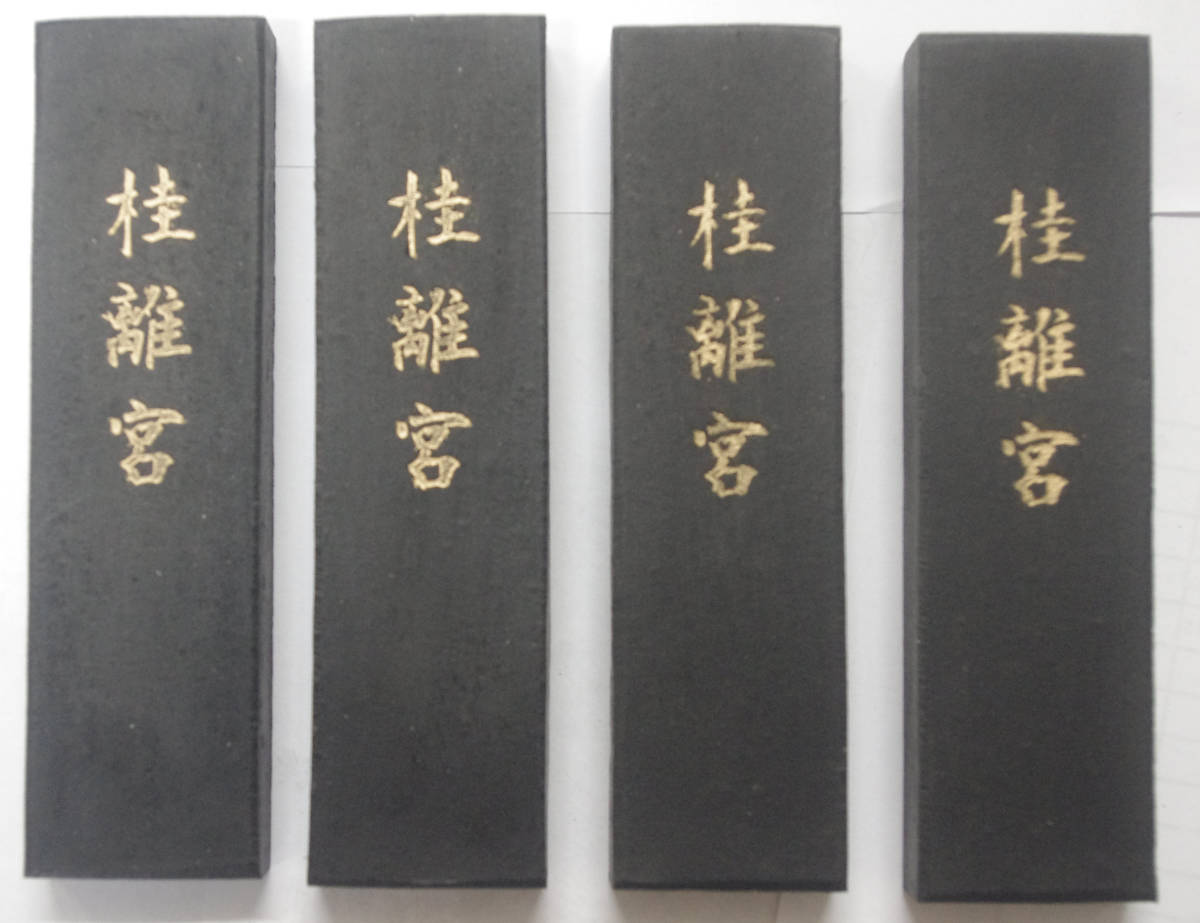 桂離宮
桂離宮
桂離宮
桂離宮